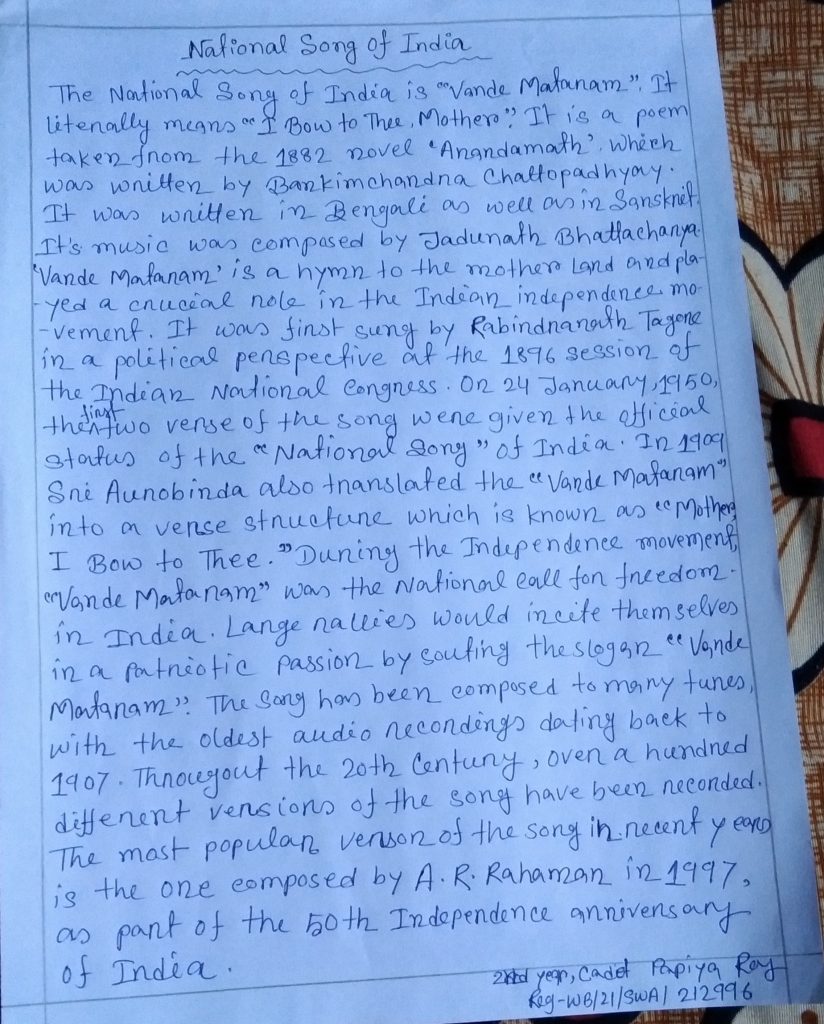 National Song of India
The National Song of India is "Vande Mataram". It
literally means "I Bow to Thee, Mother". It is a poem
taken from the 1882 novel 'Anandamath'. Which
was written by Bankimchandra Chattopadhyay.
It was written in Bengali as well as in Sanskrit.
It's music was composed by Jadunath Bhattacharya.
'Vande Mataram' is a hymn to the mother Land and pla-
-yed a crucial role in the Indian independence mo-
-vement. It was first sung by Rabindranath Tagore
in a political perspective at the 1896 session of
the Indian National Congress. On 24 January, 1950,
the first two verse of the song were given the official
status of the "National Song" of India. In 1909
Sri Aurobinda also translated the "Vande Mataram"
into a verse structure which is known as "Mother,
I Bow to Thee." During the Independence movement,
"Vande Mataram" was the National call for freedom
in India. Large rallies would incite themselves
in a Patriotic Passion by souting the slogan "Vande
Mataram". The Song has been composed to many tunes,
with the oldest audio recordings dating back to
1907. Througout the 20th Century, over a hundred
different versions of the song have been recorded.
The most popular verson of the song in recent years
is the one composed by A. R. Rahaman in 1997,
as part of the 50th Independence anniversary
of India.
2nd year, Cadet Papiya Roy
Reg-WB/21/SWA/212996